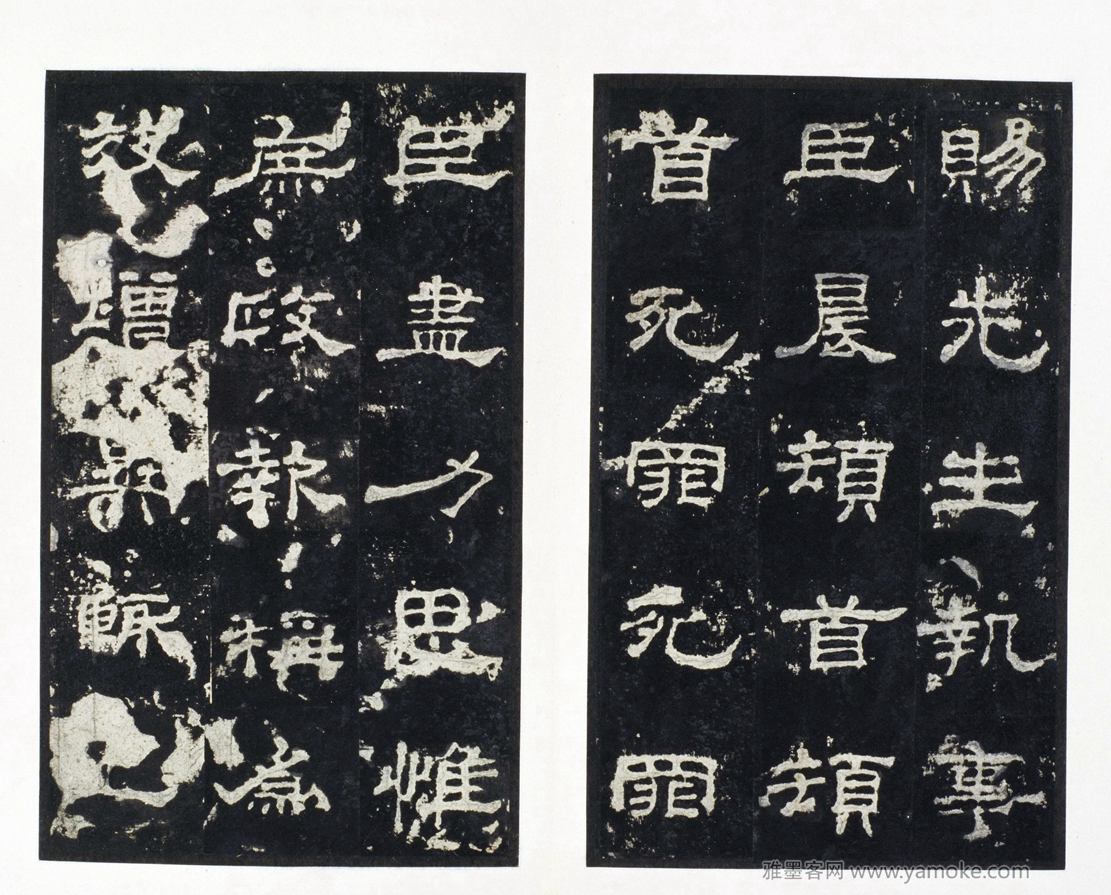 賜先生執事
臣晨頓首頓
首死罪死罪
臣盡力思惟
庶政報稱為
效增異輒上
雅墨客网 www.yamoke.com